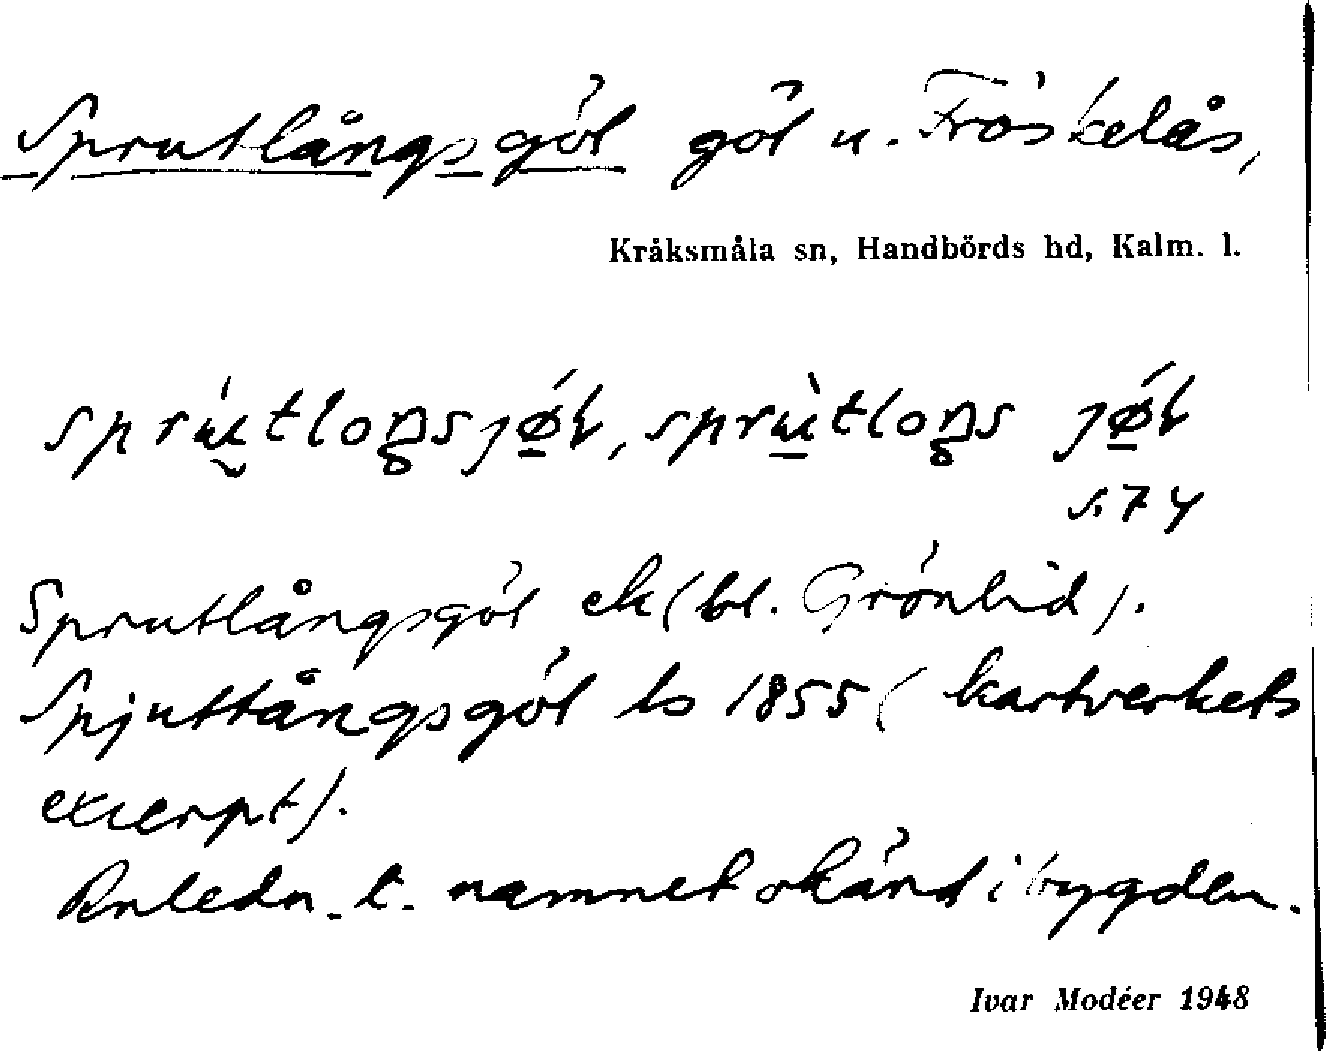 Sprutlångsgöl göl u. Fröskelås,
Kråksmåla sn, Handbörds hd, Kalm. l.
sprútloŋsjǿ̱l, sprùtloŋs jǿ̱l
s. 74
Sprutlångsgöl ek (bl. Grönlid).
Spjuttångsgöl ls 1855 (kartverkets
excerpt).
Anledn. t. namnet okänd i bygden.
Ivar Modéer 1948